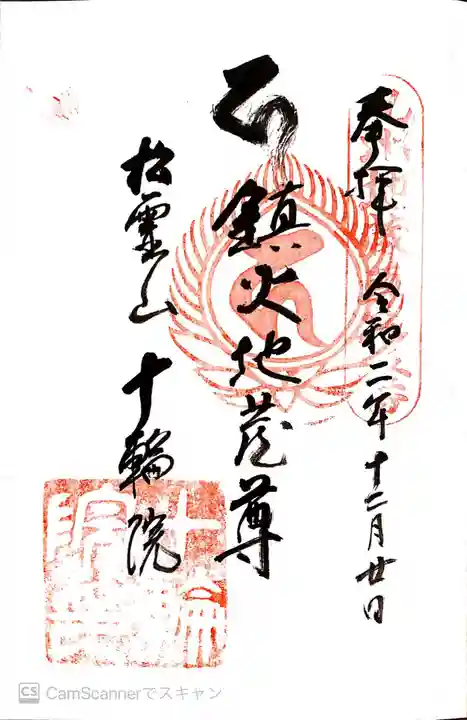 奉拝 令和二年十二月廿日
鎮火地蔵尊
松霊山 十輪院
CS CamScannerでスキャン